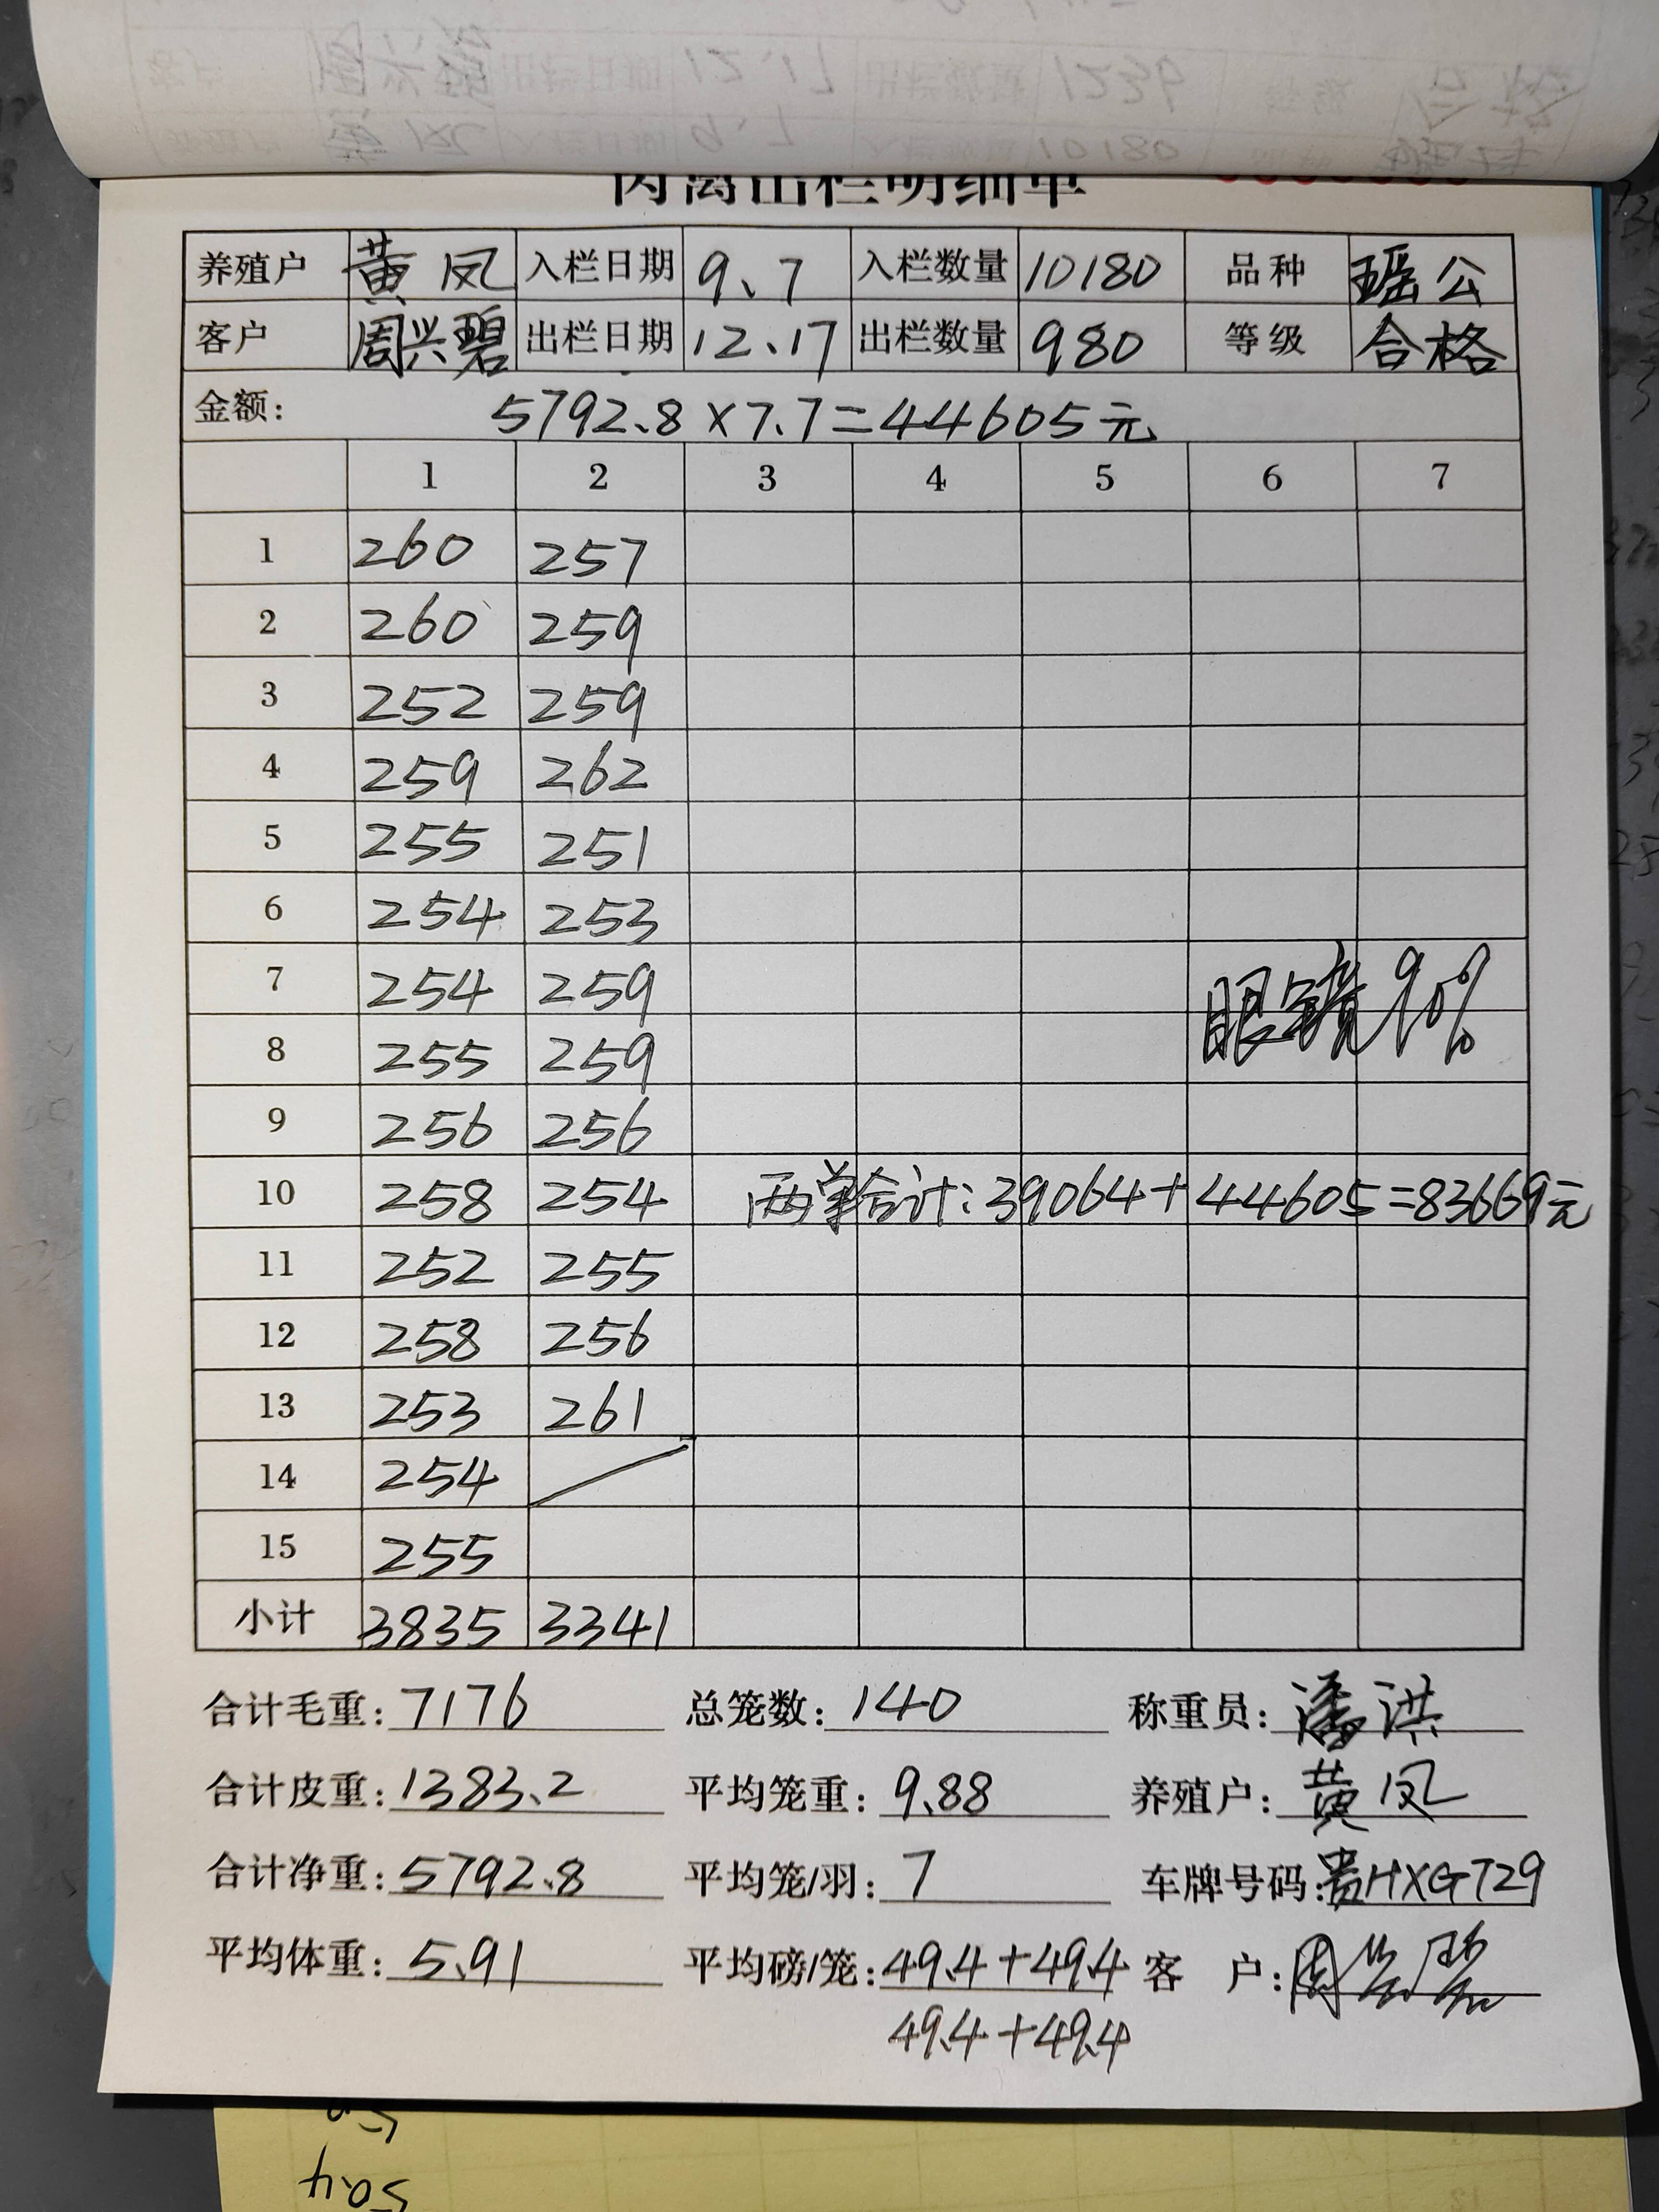 肉禽出栏明细单
养殖户 黄凤 入栏日期 9、7 入栏数量 10180 品种 瑶公
客户 周兴碧 出栏日期 12、17 出栏数量 980 等级 合格
金额: 5792.8×7.7=44605元
1 2 3 4 5 6 7
1 260 257
2 260 259
3 252 259
4 259 262
5 255 251
6 254 253
7 254 259
眼镜90%
8 255 259
9 256 256
10 258 254 两单合计:39064+44605=83669元
11 252 255
12 258 256
13 253 261
14 254
15 255
小计 3835 3341
合计毛重: 7176 总笼数: 140 称重员: 潘洪
合计皮重: 1383.2 平均笼重: 9.88 养殖户: 黄凤
合计净重: 5792.8 平均笼/羽: 7 车牌号码: 贵HXG729
平均体重: 5.91 平均磅/笼: 49.4+49.4 客 户: 周兴碧
49.4+49.4
50.4